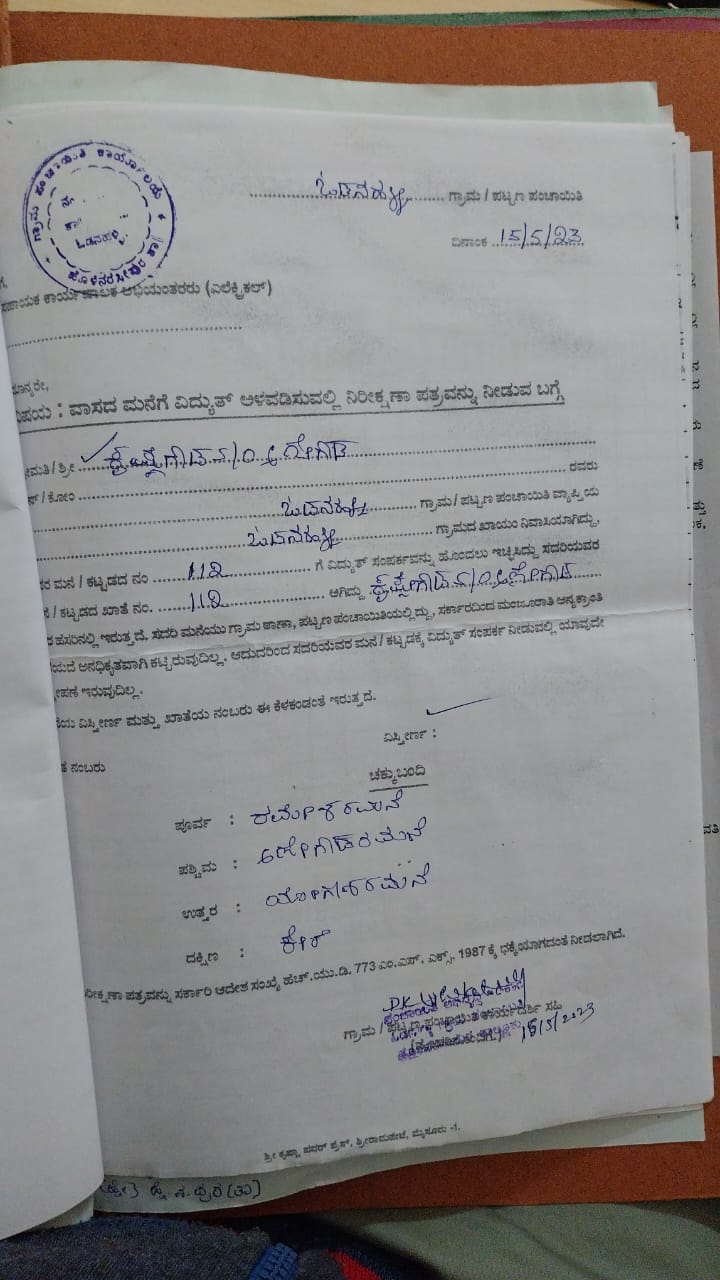 ಗ್ರಾಮ ಪಂಚಾಯಿತಿ ಕಾರ್ಯಾಲಯ
ಒಡನಹಳ್ಳಿ
ಹೊಳೆನರಸೀಪುರ ತಾ||
ಒಡನಹಳ್ಳಿ ಗ್ರಾಮ / ಪಟ್ಟಣ ಪಂಚಾಯಿತಿ
ದಿನಾಂಕ 15/5/23
ಸಹಾಯಕ ಕಾರ್ಯಪಾಲಕ ಅಭಿಯಂತರರು (ಎಲೆಕ್ಟ್ರಿಕಲ್)
ಮಾನ್ಯರೇ,
ವಿಷಯ : ವಾಸದ ಮನೆಗೆ ವಿದ್ಯುತ್ ಅಳವಡಿಸುವಲ್ಲಿ ನಿರೀಕ್ಷಣಾ ಪತ್ರವನ್ನು ನೀಡುವ ಬಗ್ಗೆ
ಮತಿ / ಶ್ರೀ S/O
ನ್ / ಕೋಂ ರವರು
ಒಡನಹಳ್ಳಿ ಗ್ರಾಮ / ಪಟ್ಟಣ ಪಂಚಾಯಿತಿ ವ್ಯಾಪ್ತಿಯ
ಒಡನಹಳ್ಳಿ ಗ್ರಾಮದ ಖಾಯಂ ನಿವಾಸಿಯಾಗಿದ್ದು,
ರ ಮನೆ / ಕಟ್ಟಡದ ನಂ 112 ಗೆ ವಿದ್ಯುತ್ ಸಂಪರ್ಕವನ್ನು ಹೊಂದಲು ಇಚ್ಛಿಸಿದ್ದು ಸದರಿಯವರ
/ ಕಟ್ಟಡದ ಖಾತೆ ನಂ. 112 ಆಗಿದ್ದು S/O
ರ ಹೆಸರಿನಲ್ಲಿ ಇರುತ್ತದೆ. ಸದರಿ ಮನೆಯು ಗ್ರಾಮ ಠಾಣಾ, ಪಟ್ಟಣ ಪಂಚಾಯಿತಿಯಲ್ಲಿದ್ದು, ಸರ್ಕಾರದಿಂದ ಮಂಜೂರಾತಿ ಅನ್ಯಕ್ರಾಂತಿ
ಯದೆ ಅನಧಿಕೃತವಾಗಿ ಕಟ್ಟಿರುವುದಿಲ್ಲ. ಆದುದರಿಂದ ಸದರಿಯವರ ಮನೆ / ಕಟ್ಟಡಕ್ಕೆ ವಿದ್ಯುತ್ ಸಂಪರ್ಕ ನೀಡುವಲ್ಲಿ ಯಾವುದೇ
ಕ್ಷೇಪಣೆ ಇರುವುದಿಲ್ಲ.
ಯ ವಿಸ್ತೀರ್ಣ ಮತ್ತು ಖಾತೆಯ ನಂಬರು ಈ ಕೆಳಕಂಡಂತೆ ಇರುತ್ತದೆ.
ನಂಬರು ವಿಸ್ತೀರ್ಣ :
ಚಕ್ಕುಬಂದಿ
ಪೂರ್ವ : ರಮೇಶರಮನೆ
ಪಶ್ಚಿಮ :
ಉತ್ತರ : ಯೋಗೇಶರಮನೆ
ದಕ್ಷಿಣ :
ರೀಕ್ಷಣಾ ಪತ್ರವನ್ನು ಸರ್ಕಾರಿ ಆದೇಶ ಸಂಖ್ಯೆ ಹೆಚ್.ಯು.ಡಿ. 773 ಎಂ.ಎಸ್. ಎಕ್ಸ್. 1987 ಕ್ಕೆ ಧಕ್ಕೆಯಾಗದಂತೆ ನೀಡಲಾಗಿದೆ.
ಗ್ರಾಮ / ಪಟ್ಟಣ ಪಂಚಾಯಿತಿ ಕಾರ್ಯದರ್ಶಿ ಸಹಿ
15/5/2023
ಶ್ರೀ ಕೃಷ್ಣಾ ಪವರ್ ಪ್ರೆಸ್, ಶ್ರೀರಾಮಪೇಟೆ, ಮೈಸೂರು -1.